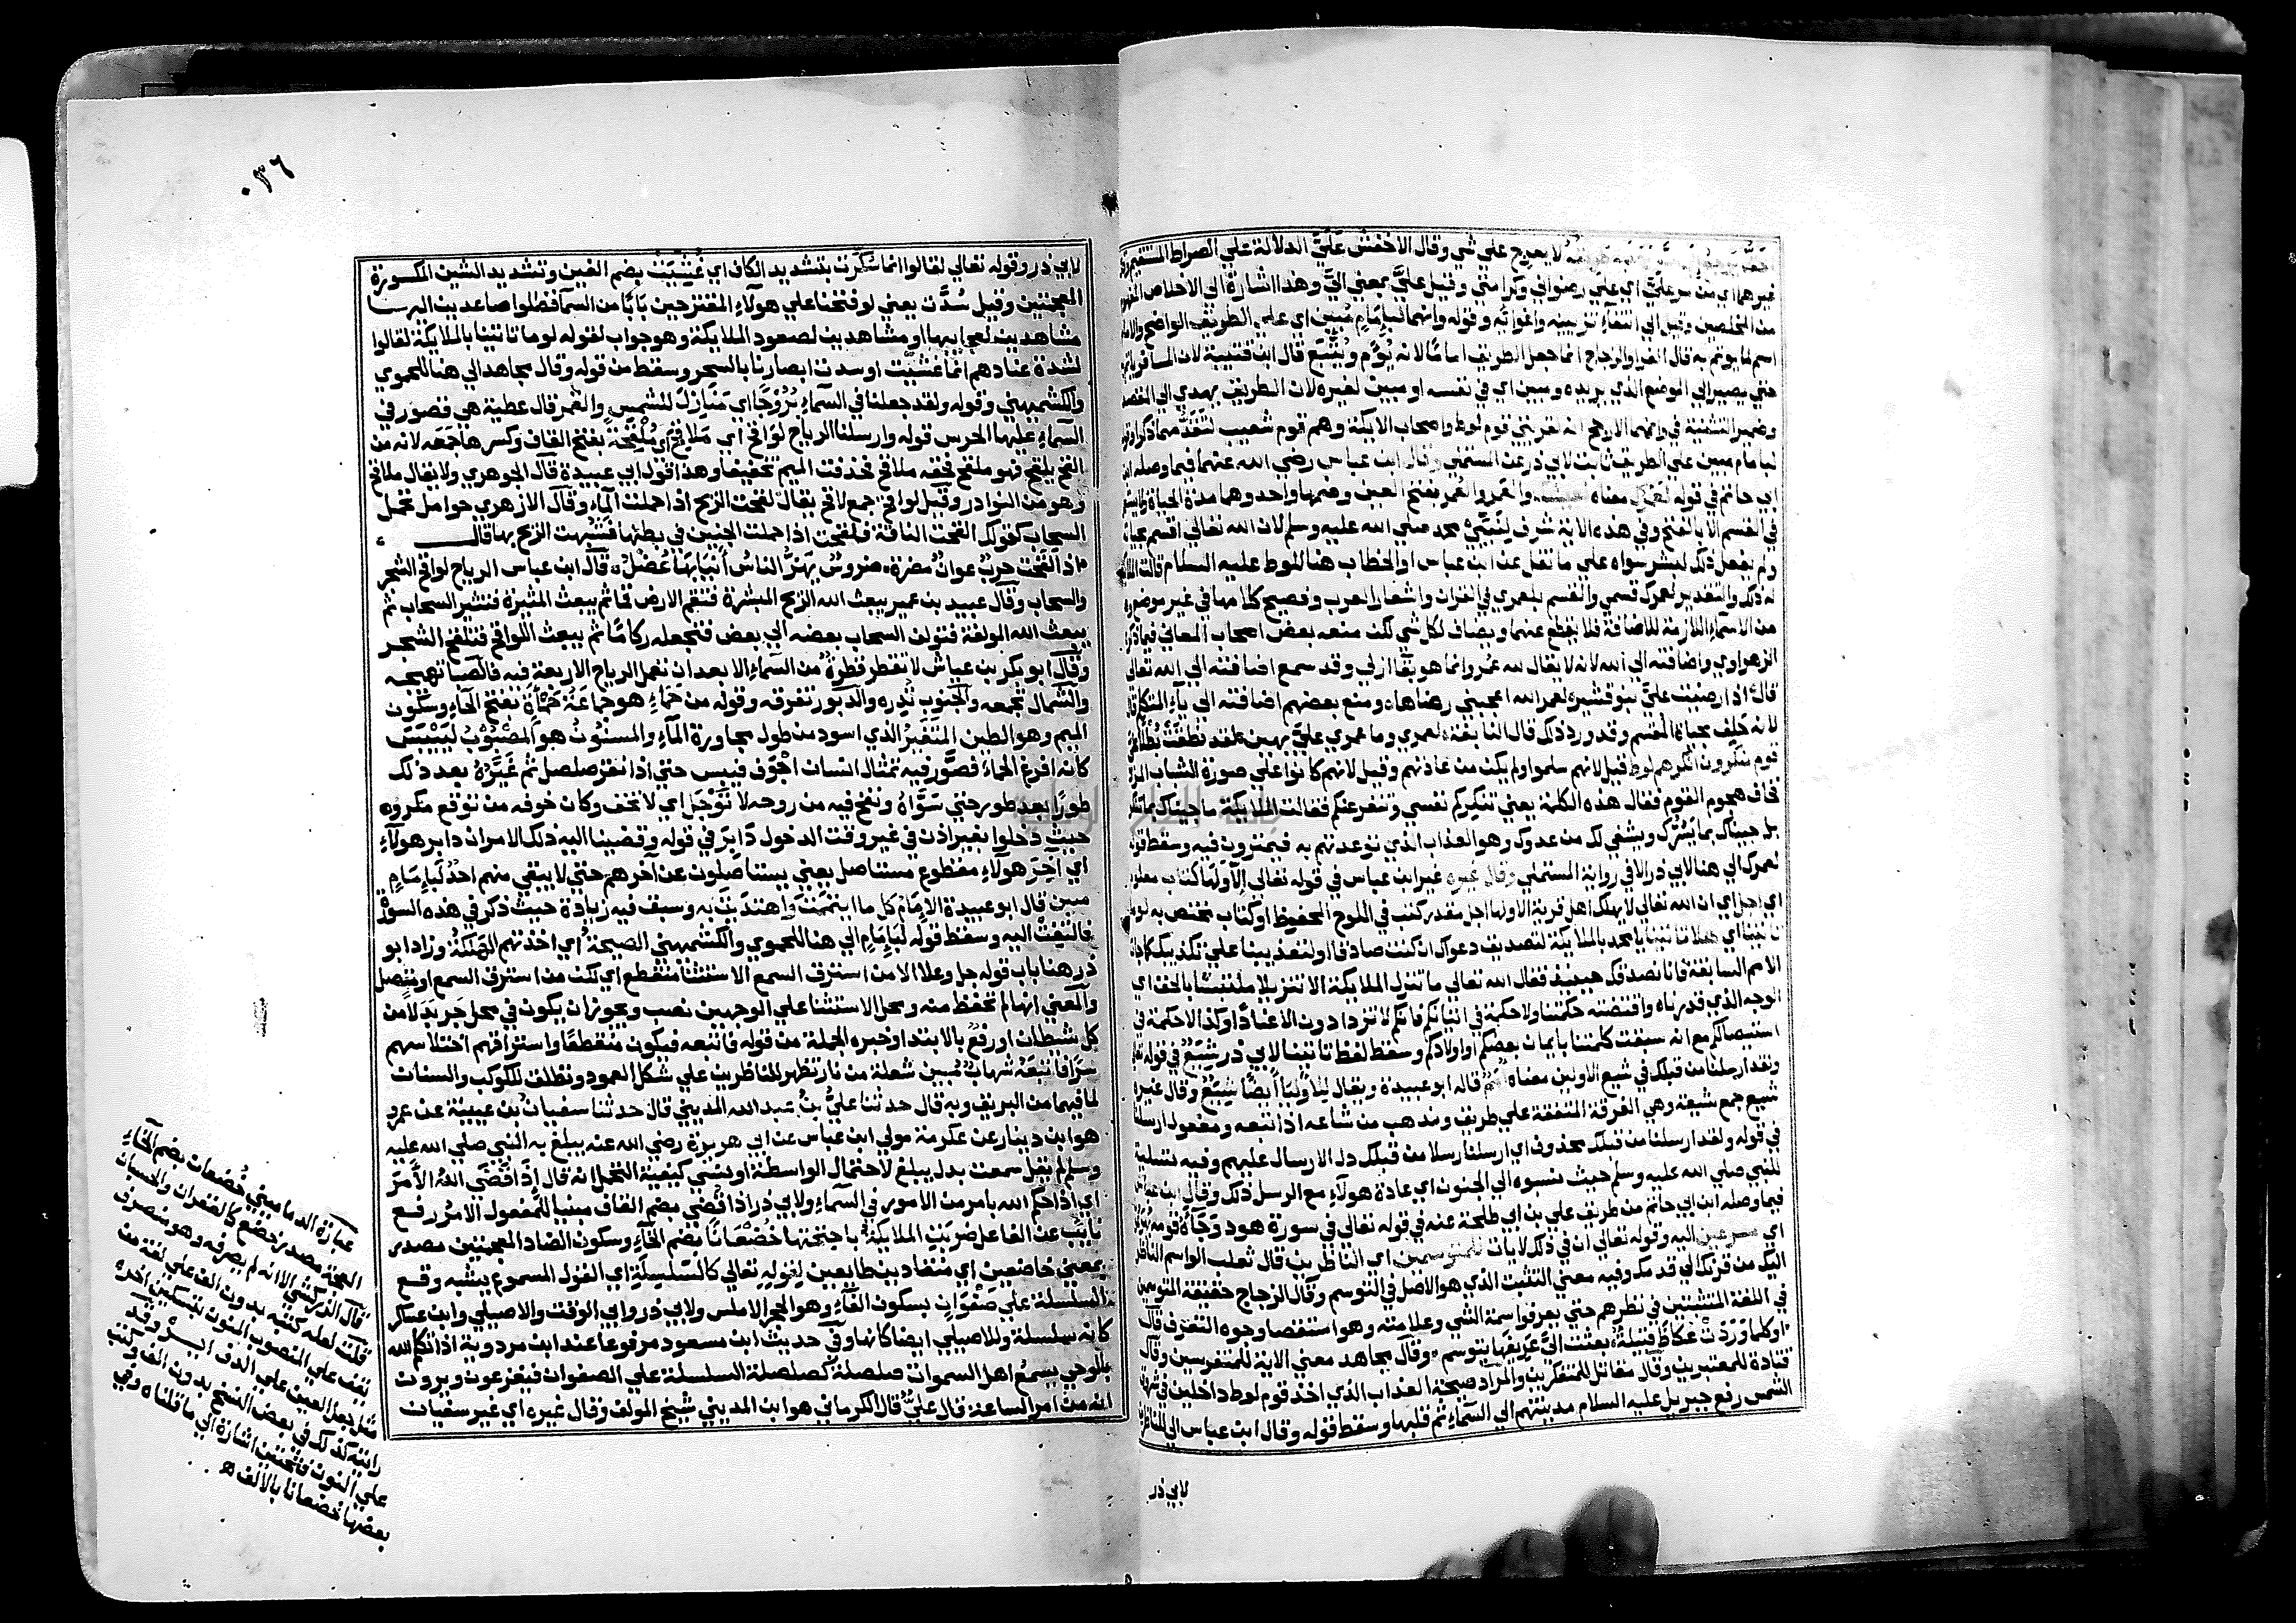 لا يعرج علي شي وقال الاخفش عَلَيَّ الدلالة علي الصراط المستقيم
غيرهما اي من مر عليَّ اي علي رضواني وكرامتي وقيل عليَّ بمعني اليَّ وهذا اشارة الي الاخلاص المفهوم
من المخلصين وقيل الي انتفاء تزيينه واغوائه وقوله وانهما لبإمام مُبين اي علي الطريق الواضح والامام
اسم لما يوتم به قال الفرا والزجاج انما جعل الطريق اماما لانه يُؤم ويُتَّبَع قال ابن قتيبة لان المسافر ياتم به
حتي يصير الي الموضع الذي يريده ومبين اي في نفسه او مبين لغيره لان الطريق يهدي الي المقصد
وضمير التثنية في وانهما الارجح انه لقريتي قوم لوط واصحاب الايكة وهم قوم شعيب لتقدمهما ذكرا وقوله
لبامام مبين علي الطريق ثابت لابي ذر عن المستملي وقال ابن عباس رضي الله عنهما فيما وصله ابن
ابي حاتم في قوله لعمرك معناه لعيشك والعَمر والعُمر بفتح العين وضمها واحد وهما مدة الحياة ولا يستعمل
في القسم الا بالفتح وفي هذه الاية شرف لنبيّنا محمد صلي الله عليه وسلم لان الله تعالي اقسم بحياته
ولم يفعل ذلك لبشر سواه علي ما نقل عن ابن عباس او الخطاب هنا للوط عليه السلام قالت الملائكة
له ذلك والتقدير لعمرك قسمي والقسم بلعمري في القران واشعار العرب وفصيح كلامها في غير موضع وهو
من الاسماء اللازمة للاضافة فلا يقطع عنها ويضاف لكل شي لكن منعه بعض اصحاب المعاني فيما ذكره
الزهراوي واضافته الي الله لانه لا يقال لله عمر وانما هو بقا ازلي وقد سمع اضافته الي الله تعالي
قال اذا رضيت عليّ بنو قشير، لعمر الله اعجبني رضاها، ومنع بعضهم اضافته الي ياء المتكلم قال
لانه حلف بحياة المقسم وقد ورد ذلك قال النابغة، لعمري وما عمري عليّ بهين، لقد نطقت بُطلا عليّ
قوم منكرون انكرهم لوط قيل لانهم سلموا ولم يكن من عادتهم وقيل لانهم كانوا علي صورة الشباب المرد
فخاف هجوم القوم فقال هذه الكلمة يعني تنكركم نفسي وتنفر عنكم فقالت الملايكة ما جيناك بما تنكر
بل جيناك بما يَسُرّك ويشفي لك من عدوك وهو العذاب الذي توعدتهم به فيمترون فيه وسقط قوله
لعمرك الي هنا لابي ذر الا في رواية المستملي وقال غيره غير ابن عباس في قوله تعالي الا ولها كتاب معلوم
اي اجل اي ان الله تعالي لا يهلك اهل قرية الا ولها اجل مقدر كتب في اللوح المحفوظ او كتاب مختص به لوما
تاتينا اي هلا تاتينا يا محمد بالملايكة لتصديق دعواك ان كنت صادقا او لتعذيبنا علي تكذيبك كما جاءت
الامم السابقة فانا نصدقك حينيذ فقال الله تعالي ما تنزل الملايكة الا تنزيلا ملتبسًا بالحق اي
الوجه الذي قدرناه واقتضته حكمتنا ولا حكمة في اتيانكم فانكم لا تزدادون الا عنادا وكذا لا حكمة في
استيصالكم مع انه سبقت كلمتنا بايمان بعضكم او اولادكم وسقط لفظ تاتينا لابي ذر شِيَعٌ في قوله تعالي
ولقد ارسلنا من قبلك في شيع الاولين معناه امم قاله ابو عبيدة ويقال للاوليا ايضًا شِيَعٌ وقال غيره
شيع جمع شيعة وهي الفرقة المتفقة علي طريق ومذهب من شاعه اذا تبعه ومفعول ارسلنا
في قوله ولقد ارسلنا من قبلك محذوف اي ارسلنا رسلا من قبلك دل الارسال عليهم وفيه تسلية
للنبي صلي الله عليه وسلم حيث نسبوه الي الجنون اي عادة هولاء مع الرسل ذلك وقال ابن عباس
فيما وصله ابن ابي حاتم من طريق علي بن ابي طلحة عنه في قوله تعالي في سورة هود وَجَآءَهُ قومه يُهرعون
اي مسرعين اليه وقوله تعالي ان في ذلك لايات للمتوسمين اي الناظرين قال ثعلب الواسم الناظر
اليك من قرنك الي قدمك وفيه معني التثبت الذي هو الاصل في التوسم وقال الزجاج حقيقة المتوسمين
في اللغة المتثبتين في نظرهم حتي يعرفوا سمة الشي وعلامته وهو استقصا وجوه التعرف قال
، او كلما وردت عكاظ قبيلة، بعثت اليّ عَريفها يتوسم، وقال مجاهد معني الاية للمتفرسين وقال
قتادة للمعتبرين وقال مقاتل للمتفكرين والمراد صيحة العذاب الذي اخذ قوم لوط داخلين في شروق
الشمس رفع جبريل عليه السلام مدينتهم الي السماء ثم قلبها وسقط قوله وقال ابن عباس الي للناظرين
لابي ذر
٠٣٦
لابي ذر وقوله تعالي لقالوا انما سُكّرت بتشديد الكاف اي غُشّيَتْ بضم الغين وتشديد الشين المكسورة
المعجمتين وقيل سُدَّت يعني لو فتحنا علي هولاءِ المقترحين بَابًا من السمآ فظلوا صاعدين اليها
مشاهدين لعجايبها او مشاهدين لصعود الملايكة وهو جواب لقوله لوما تاتينا بالملايكة لقالوا
لشدة عنادهم انما غشيت او سدت ابصارنا بالسحر وسقط من قوله وقال مجاهد الي هنا للحموي
والكشميهني وقوله ولقد جعلنا في السماءِ بُرُوجًا اي مَنَازل للشمسِ والقمر قال عطية هي قصور في
السماءِ عليها الحرس قوله وارسلنا الرياح لواقح اي مَلاقِحُ مُلْقِحَة بفتح القاف وكسرها جَمَعَه لانه من
القح يلقح فهو ملقح فحقه ملاقح فحذفت الميم تخفيفا وهذا قول ابي عبيدة قال الجوهري ولا يقال ملاقح
وهو من النوادر وقيل لواقح جمع لاقح يقال لقحت الريح اذا حملت المآء وقال الازهري حوامل تحمل
السحاب كقولك القحت الناقة فلقحت اذا حملت الجنين في بطنها فشبهت الريح بها قال ،
، اذا لقحت حربٌ عوانٌ مضرة، ضروسٌ يهرُّ الناسُ أنيابَها عُضْلُ، قال ابن عباس الرياح لواقح الشجر
والسحاب وقال عبيد بن عمير يبعث الله الريح المبشرة فتقم الارض قما ثم يبعث المثيرة فتثير السحاب ثم
يبعث الله المولفة فتولف السحاب بعضه الي بعض فتجعله ركامًا ثم يبعث اللواقح فتلقح الشجر
وقال ابو بكر بن عياش لا تقطر قطرةٌ من السماءِ الا بعد ان تعمل الرياح الاربعة فيه فالصبا تهيجه
والشمال تجمعه والجنوب تُدِره والدبور تفرقه وقوله من حماءٍ هو جماعَةُ حَمْأَة بفتح الحاءِ وسكون
الميم وهو الطين المتَغَيرُ الذي اسود من طول مجاورة المآء والمسنُون هو المَصْبُوْبُ لييبس
كانه افرغ الحمأ فصَوَّر فيه تمثال انسان اجْوَف فيبس حتي اذا نقر صلصل ثم غَيَّرَهُ بعد ذلك
طورًا بعد طور حتي سَوَّاهُ ونفخ فيه من روحه لا تَوْجَل اي لا تخف وكان خوفه من توقع مكروه
حيث دخلوا بغير اذن في غير وقت الدخول دَابِرَ في قوله وقضينا اليه ذلك الامر ان دابر هولاءِ
اي آخِرَ هولآءِ مقطوع مستاصل يعني يستاصلون عن آخرهم حتي لا يبقي منهم احدٌ لبإِمَامٍ
مبين قال ابو عبيدة الإمَامُ كل ما ايتممت واهتدَيتَ به وسبق فيه زيادة حيث ذكر في هذه السورة
فالتفت اليه وسقط قوله لَبإِمَامٍ الي هنا للحموي والكشميهني الصيحة اي اخذتهم الهَلَكَةُ وزاد ابو
ذر هنا باب قوله جل وعلا الا من استرق السمع الاستثنا منقطع اي لكن من استرق السمع او متصل
والمعني انها لم تحفظ منه ومحل الاستثنا علي الوجهين نصب ويجوز ان يكون في محل جَر بَدَلا من
كل شيطان او رفعٌ بالابتدا وخبره الجملة من قوله فاتبعه فيكون منقطعًا واستراقهم اختلاسهم
سِرًّا فَاتبعَهُ شهابٌ مُبين شعلة من نار تظهر للناظرين علي شكل العمود وتطلق للكوكب والسنان
لما فيهما من البريق وبه قال حدثنا عليُّ بنُ عبد الله المديني قال حدثنا سفيانُ بن عيينة عن عمرو
هو ابن دينار عن عكرمة مولي ابن عباس عن ابي هريرة رضي الله عنه يبلغ به النبي صلي الله عليه
وسلم لم يقل سمعت بدل يبلغ لاحتمال الواسطة او نسي كيفية التحمل انه قال إِذَا قَضَي اللهُ الأمْرَ
اي اذا حكم الله بامر من الامور في السماءِ ولابي ذر اذا قُضي بضم القاف مبنيا للمفعول الامرُ رفع
نايب عن الفاعل ضربَت الملايكةُ باجنحتها خُضْعَانًا بضم الخآءِ وسكون الضاد المعجمتين مصدر
بمعني خاضعين اي منقادين طايعين لقوله تعالي كالسلسلة اي القول المسموع يشبه وقع
السلسلة علي صَفْوَان بسكون الفاء وهو الحجر الاملس ولابي ذر وابي الوقت والاصيلي وابن عساكر
كانه سلسلة وللاصيلي ايضا كانها وفي حديث ابن مسعود مرفوعا عند ابن مردوية اذا تكلم الله
بالوحي يسمع اهل السموات صلصلةً كصلصلة السلسلة علي الصفوان فيفزعون ويرون
انه من امر الساعة قال عليٌّ قال الكرماني هو ابن المديني شيخ المولف وقال غيره اي غير سفيان
عبارة الدماميني خُضعان بضم الخاء
المعجمة مصدر خضع كالغفران والحسبان
قال الزركشي الا انه لم يصرفه وهو منصرف
قلت لعله كتبه بدون الف علي لغة من
يقف علي المنصوب المنون بتسكين اخره
علي النون فتحتين اشارة الي ما قلناه وفي
بعضها خضعانا بالالف ه